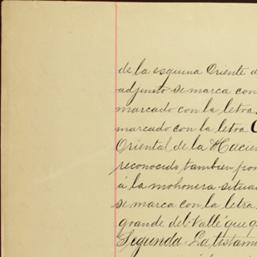 de la esquina Oriente d
adjunto se marca con
marcado con la letra
marcado con la letra C
Oriental de la Hacien
reconocido tambien por
á la mohonera situa
se marca con la letra
grande del Valle que q
Segunda. La testam